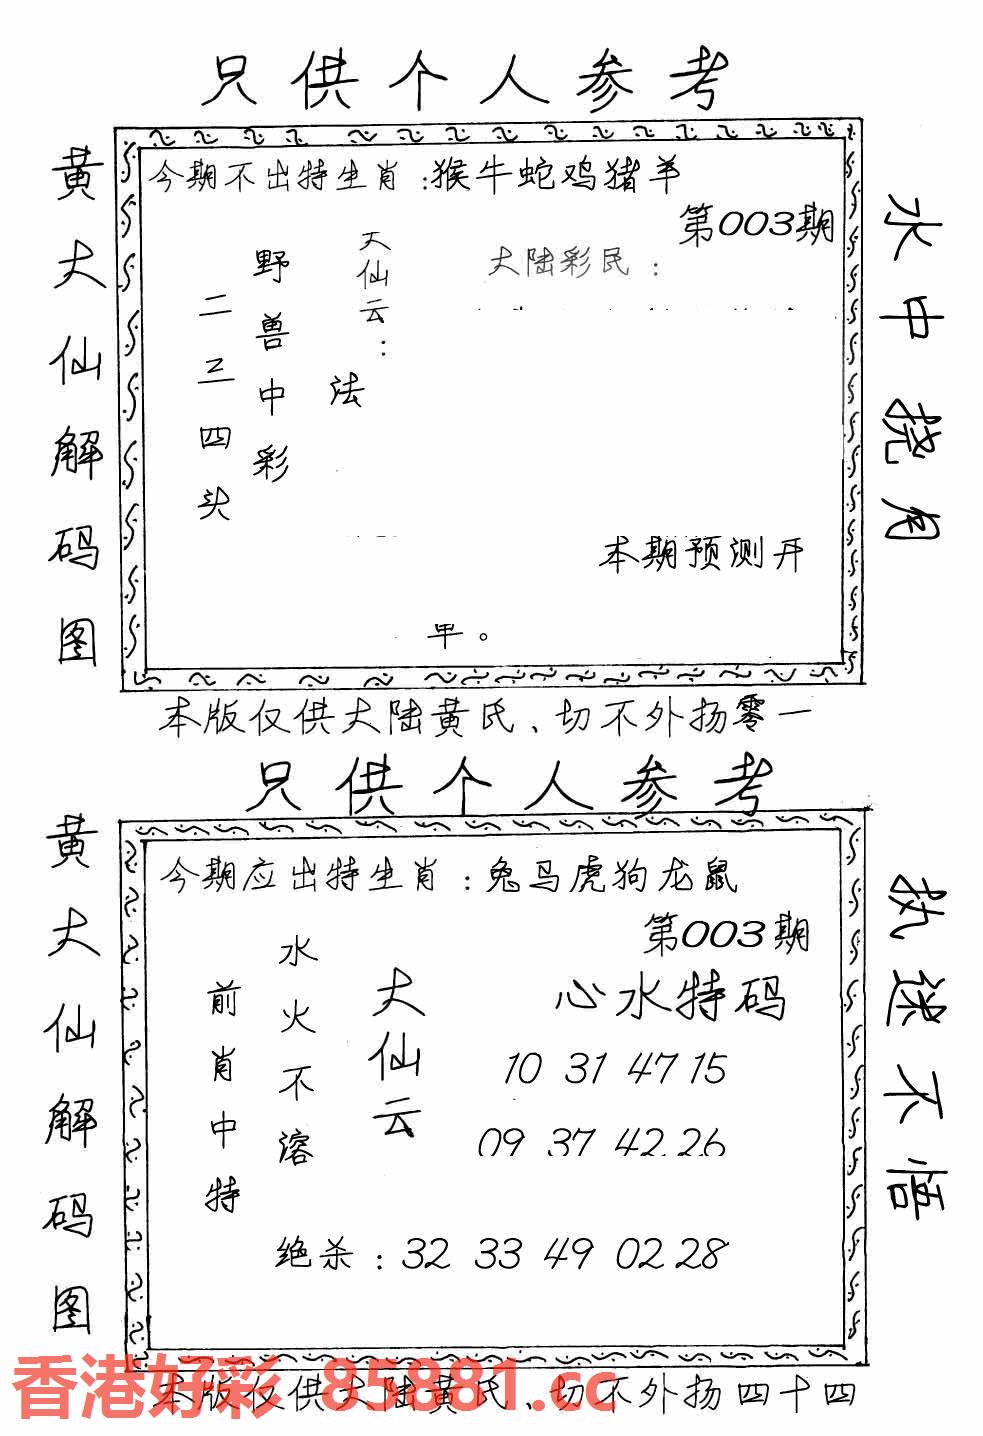 只供个人参考
黄大仙解码图
今期不出特生肖:猴牛蛇鸡猪羊
第003期
大陆彩民:
天仙云:
法
野兽中彩
二三四头
本期预测开
。
水中捞月
本版仅供大陆黄氏、切不外扬零一
只供个人参考
黄大仙解码图
今期应出特生肖:兔马虎狗龙鼠
第003期
心水特码
10 31 47 15
09 37 42 26
大仙云
水火不溶
前肖中特
绝杀:32 33 49 02 28
执迷不悟
香港好彩 85881.cc
本版仅供大陆黄氏、切不外扬四十四